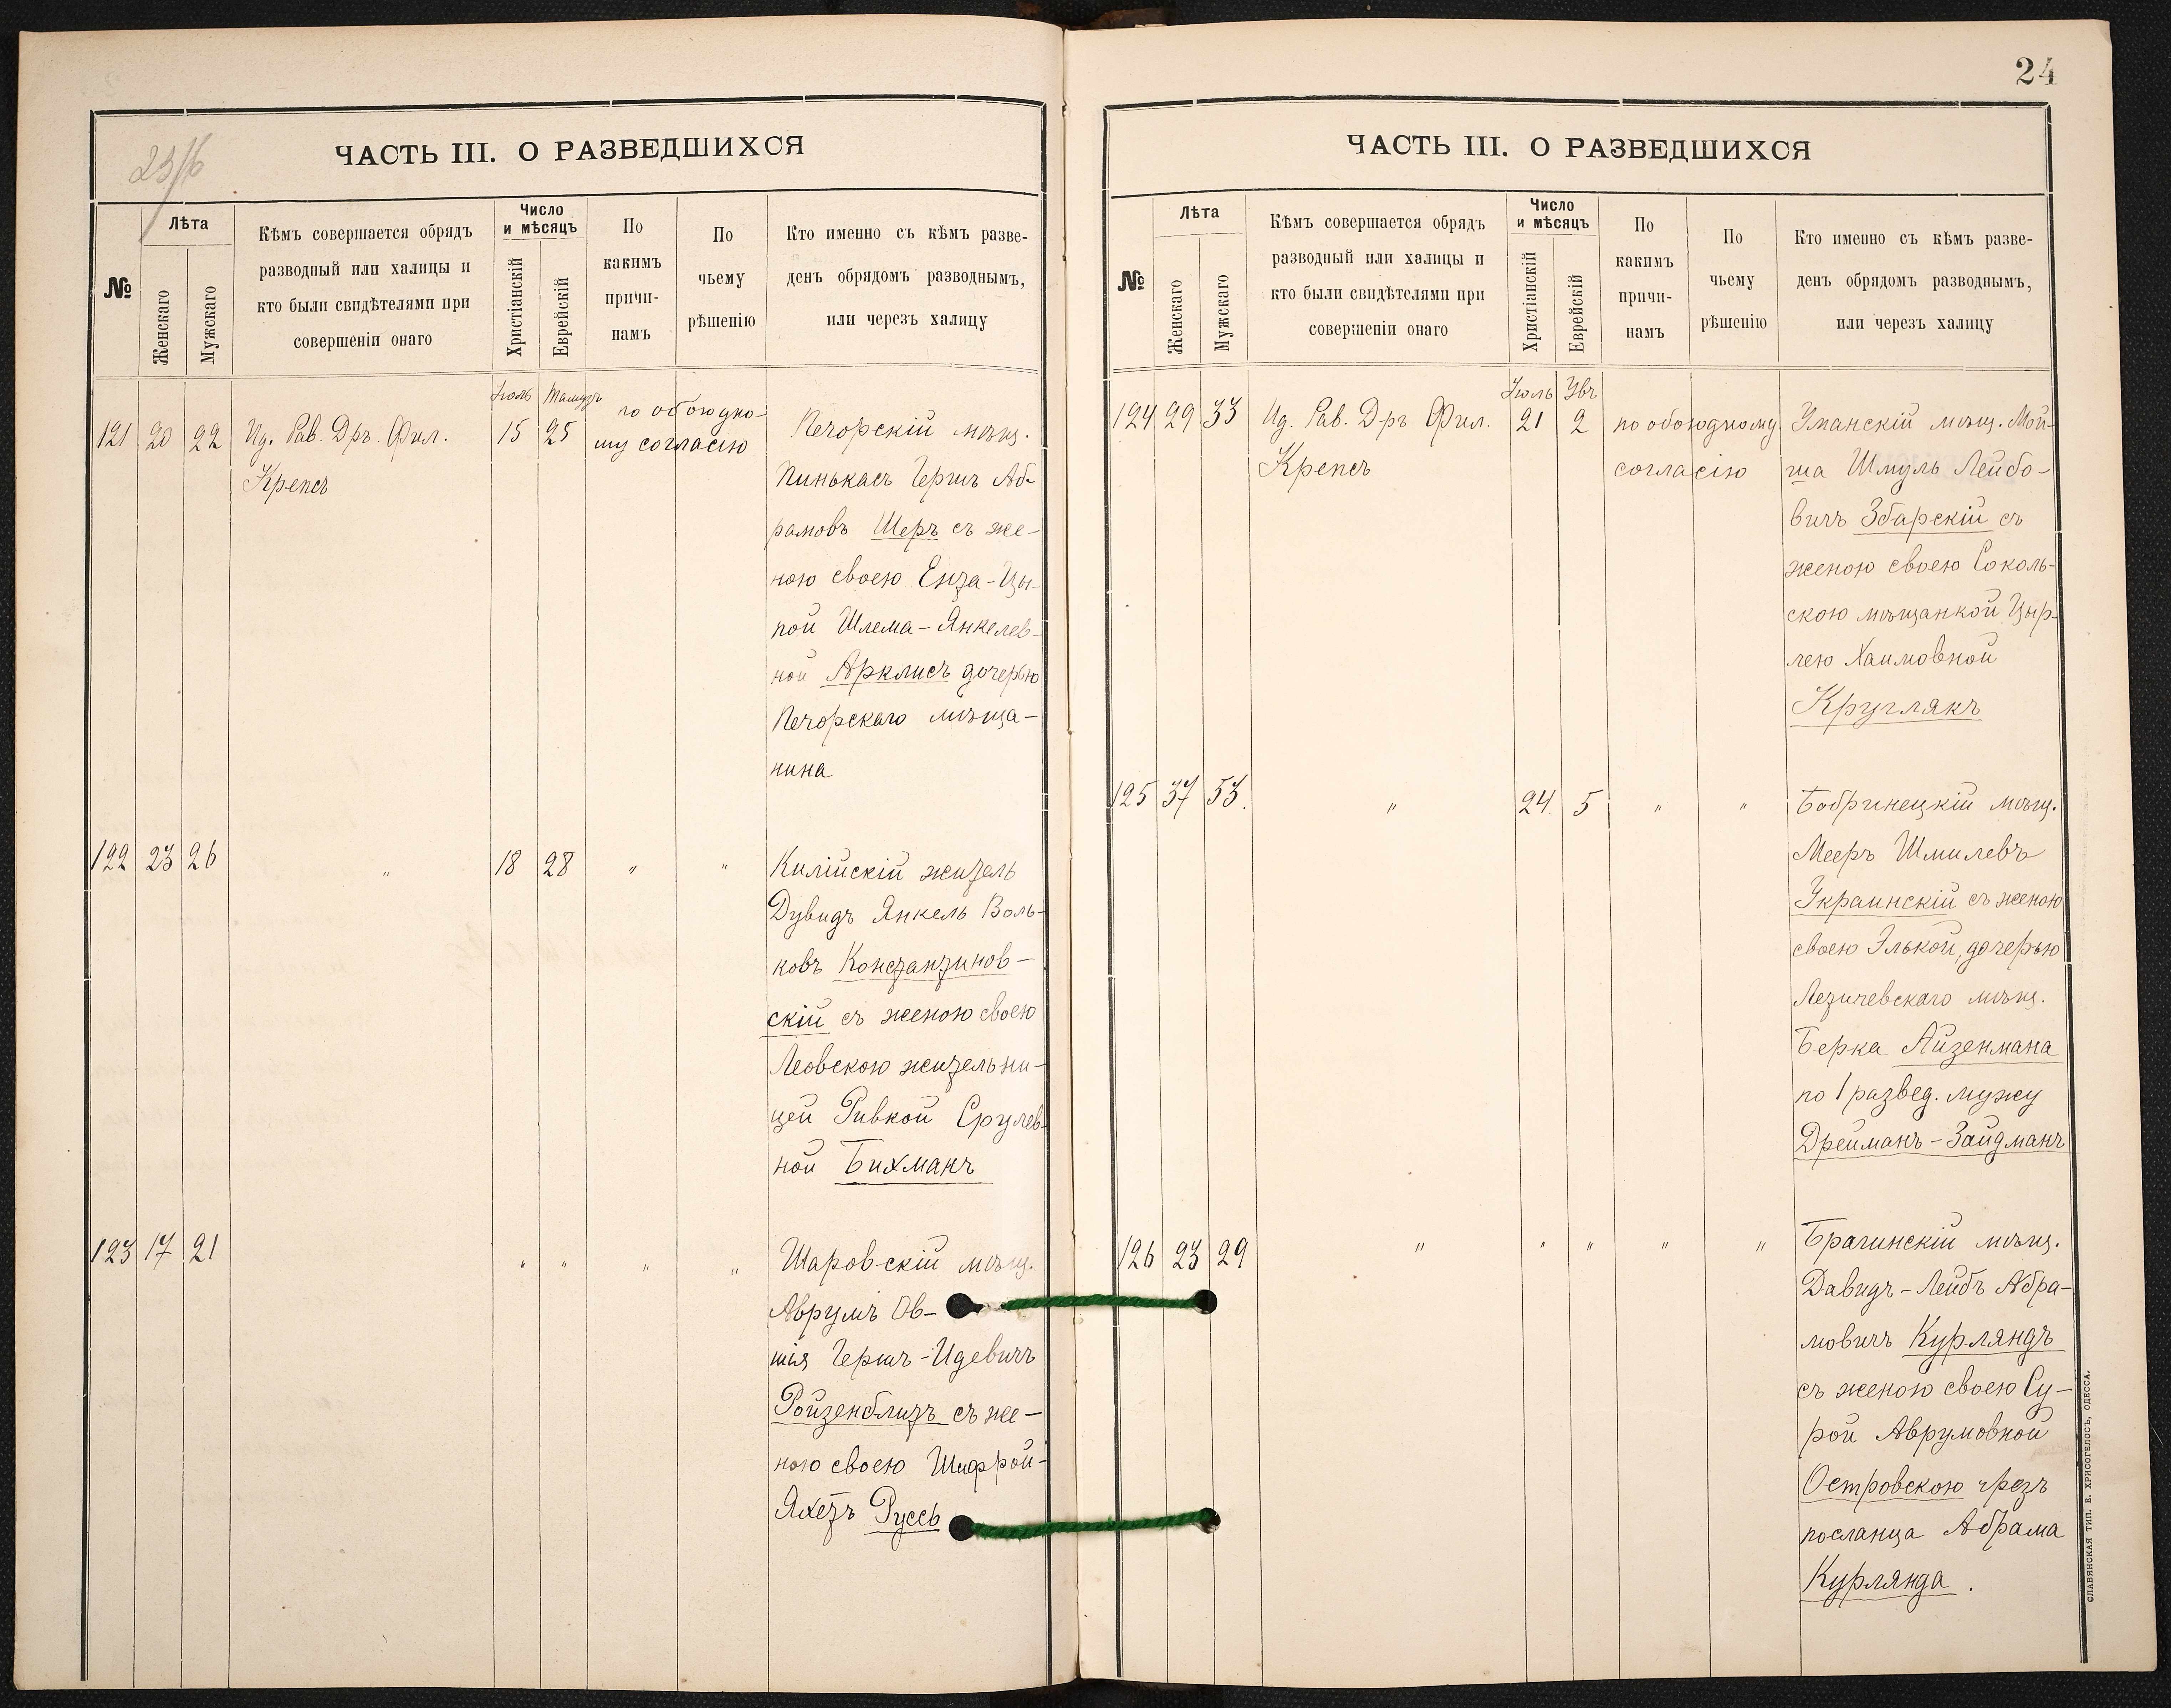 ЧАСТЬ III. О РАЗВЕДШИХСЯ
№
Лѣта
Женскаго
Мужскаго
Кѣмъ совершается обрядъ
разводный или халицы и
кто были свидѣтелями при
совершеніи онаго
Число
и мѣсяцъ
Христіанскій
Еврейскій
По
какимъ
причи-
намъ
По
чьему
рѣшенію
Кто именно съ кѣмъ разве-
денъ обрядомъ разводнымъ,
или черезъ халицу
Іюль Тамузъ
121 20 22 Ид. Рав. Дръ. Фил. 15 25 по обоюдно-
Крепсъ
му согласію
Печорскій мѣщ.
Пинькасъ Гершъ Аб-
рамовъ Шеръ съ же-
ною своею Ента-Цы-
пой Шлема-Янкелев-
ной Арклисъ дочерью
Печорскаго мѣща-
нина
122 23 26 " 18 28 " " Килійскій житель
Дувидъ Янкель Воль-
ковъ Константинов-
скій съ женою своею
Леовскою жительни-
цей Ривкой Срулев-
ной Бихманъ
123 17 21 " " " " Шаровскій мѣщ.
Аврумъ Ов-
шія Гершъ-Идевичъ
Ройзенблитъ съ же-
ною своею Шифрой-
Яхетъ Руссь
24
ЧАСТЬ III. О РАЗВЕДШИХСЯ
№
Лѣта
Женскаго
Мужскаго
Кѣмъ совершается обрядъ
разводный или халицы и
кто были свидѣтелями при
совершеніи онаго
Число
и мѣсяцъ
Христіанскій
Еврейскій
По
какимъ
причи-
намъ
По
чьему
рѣшенію
Кто именно съ кѣмъ разве-
денъ обрядомъ разводнымъ,
или черезъ халицу
Іюль Увъ
124 29 33 Ид. Рав. Дръ Фил. 21 2 по обоюдному Уманскій мѣщ. Мой-
Крепсъ согласію ша Шмуль Лейбо-
вичъ Збарскій съ
женою своею Соколь-
скою мѣщанкой Цыр-
лею Хаимовной
Круглякъ
125 37 53. " 24 5 " " Бобринецкій мѣщ.
Мееръ Шмилевъ
Украинскій съ женою
своею Элькой, дочерью
Летичевскаго мѣщ.
Берка Айзенмана
по 1 развед. мужу
Дрейманъ-Зайдманъ
126 23 29 " " " " " Брагинскій мѣщ.
Давидъ-Лейбъ Абра-
мовичъ Курляндъ
съ женою своею Су-
рой Аврумовной
Островскою чрезъ
посланца Абрама
Курлянда.
СЛАВЯНСКАЯ ТИП. Е. ХРИСОГЕЛОСЪ, ОДЕССА.